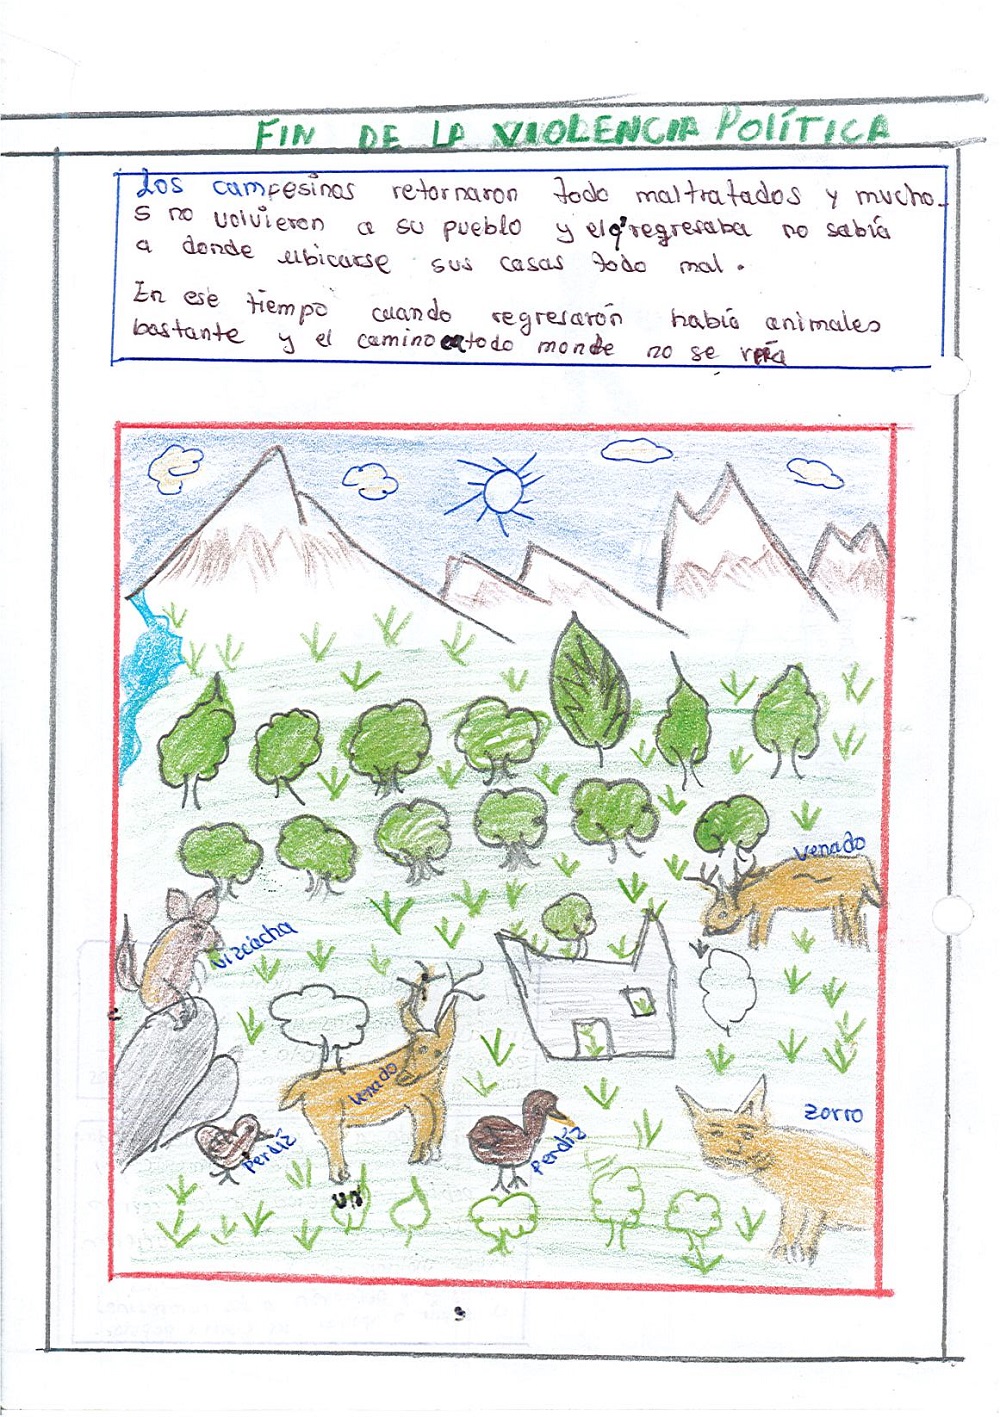 FIN DE LA VIOLENCIA POLÍTICA
Los campesinos retornaron todo maltratados y mucho-
s no volvieron a su pueblo y el q' regresaba no sabía
a donde ubicarse sus casas todo mal.
En ese tiempo cuando regresarón había animales
bastante y el camino todo monde no se veía
Venado
Vizcacha
Venado
Zorro
Perdíz
Perdíz